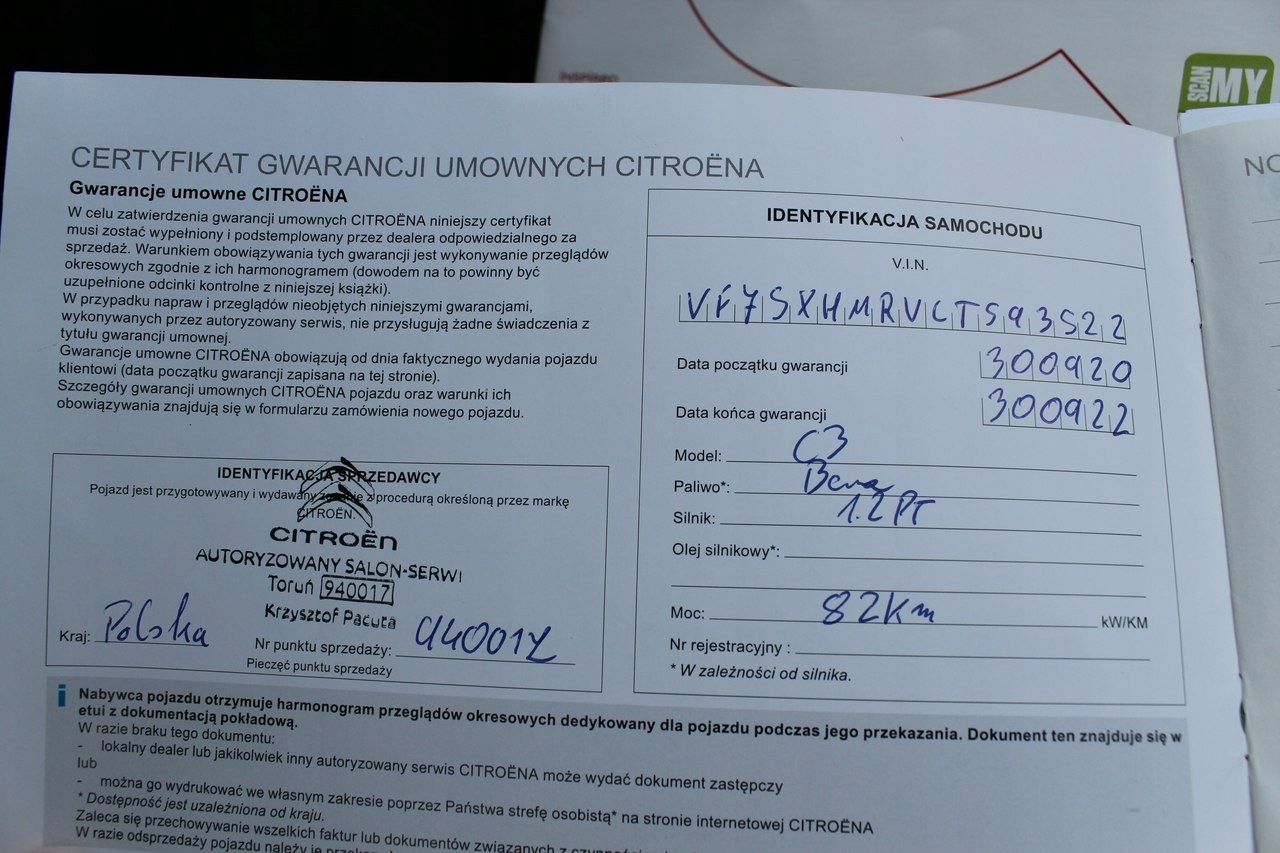 SCAN
MY
CERTYFIKAT GWARANCJI UMOWNYCH CITROËNA
Gwarancje umowne CITROËNA
W celu zatwierdzenia gwarancji umownych CITROËNA niniejszy certyfikat
musi zostać wypełniony i podstemplowany przez dealera odpowiedzialnego za
sprzedaż. Warunkiem obowiązywania tych gwarancji jest wykonywanie przeglądów
okresowych zgodnie z ich harmonogramem (dowodem na to powinny być
uzupełnione odcinki kontrolne z niniejszej książki).
W przypadku napraw i przeglądów nieobjętych niniejszymi gwarancjami,
wykonywanych przez autoryzowany serwis, nie przysługują żadne świadczenia z
tytułu gwarancji umownej.
Gwarancje umowne CITROËNA obowiązują od dnia faktycznego wydania pojazdu
klientowi (data początku gwarancji zapisana na tej stronie).
Szczegóły gwarancji umownych CITROËNA pojazdu oraz warunki ich
obowiązywania znajdują się w formularzu zamówienia nowego pojazdu.
IDENTYFIKACJA SPRZEDAWCY
Pojazd jest przygotowywany i wydawany zgodnie z procedurą określoną przez markę
CITROËN.
CITROËN
AUTORYZOWANY SALON-SERWI
Toruń 940017
Krzysztof Pacuta
Kraj: Polska
Nr punktu sprzedaży: 940017
Pieczęć punktu sprzedaży
IDENTYFIKACJA SAMOCHODU
V.I.N.
VF7SXHMRVCTS93522
Data początku gwarancji 300920
Data końca gwarancji 300922
Model: C3
Paliwo*: Benz
Silnik: 1.2 PT
Olej silnikowy*:
Moc: 82Km kW/KM
Nr rejestracyjny :
* W zależności od silnika.
i Nabywca pojazdu otrzymuje harmonogram przeglądów okresowych dedykowany dla pojazdu podczas jego przekazania. Dokument ten znajduje się w
etui z dokumentacją pokładową.
W razie braku tego dokumentu:
- lokalny dealer lub jakikolwiek inny autoryzowany serwis CITROËNA może wydać dokument zastępczy
lub
- można go wydrukować we własnym zakresie poprzez Państwa strefę osobistą* na stronie internetowej CITROËNA
* Dostępność jest uzależniona od kraju.
Zaleca się przechowywanie wszelkich faktur lub dokumentów związanych z
W razie odsprzedaży pojazdu należy je